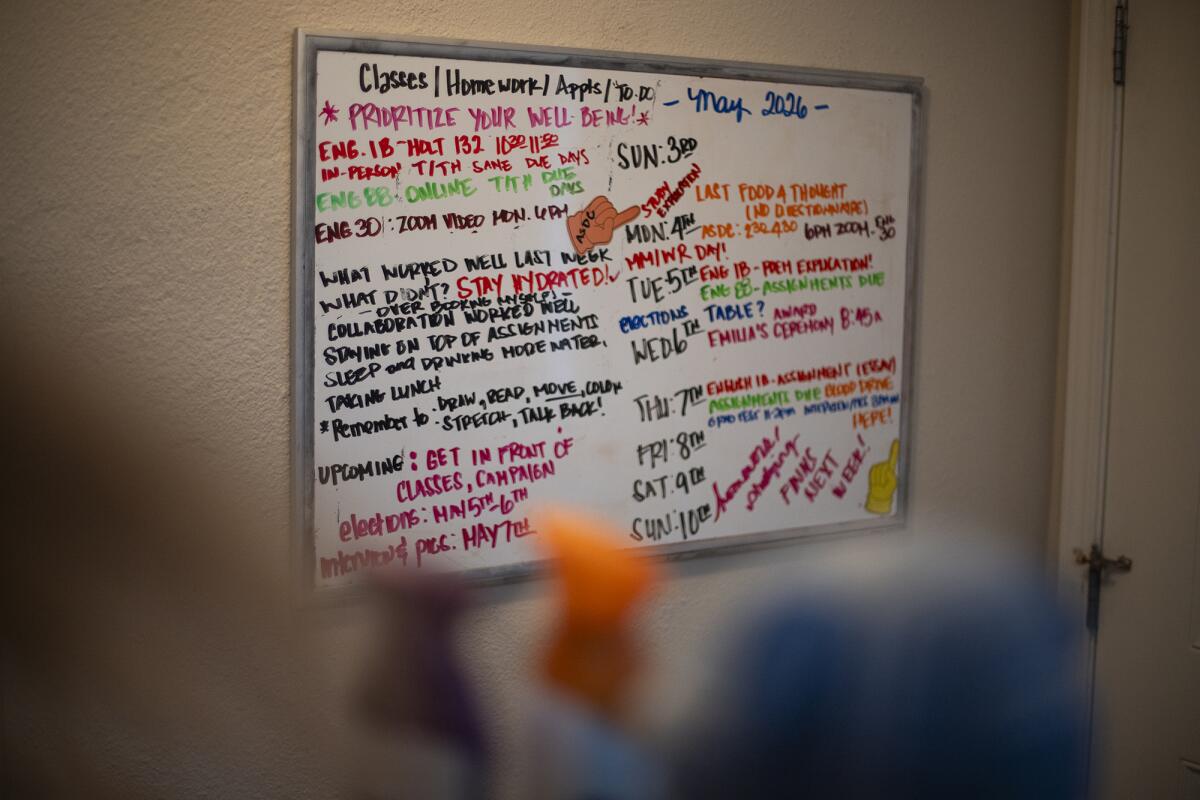 Classes / Homework / Appts / "TO-DO"
* PRIORITIZE YOUR WELL-BEING! *
ENG. 1B - HOLT 132 10:30 11:50
IN-PERSON T/TH SAME DUE DAYS
ENG 8B - ONLINE T/TH DUE
DAYS
ENG 30: ZOOM VIDEO MON. 6PM
WHAT WORKED WELL LAST WEEK
WHAT DIDN'T? STAY HYDRATED!
- OVER BOOKING MYSELF! -
COLLABORATION WORKED WELL
STAYING ON TOP OF ASSIGNMENTS
SLEEP and DRINKING MORE WATER,
TAKING LUNCH
* Remember to - DRAW, READ, MOVE, COLOR
- STRETCH, TALK BACK!
UPCOMING: GET IN FRONT OF
CLASSES, CAMPAIGN
elections: MAY 5TH-6TH
interview & pics: MAY 7TH
- May 2026 -
SUN: 3RD
ASDC
STUDY
MON: 4TH
LAST FOOD 4 THOUGHT
(NO DIRECTIONNAIRE)
ASDC: 230-430 6PM ZOOM - ENG
30
MM/WR DAY!
TUE: 5TH ENG 1B - POEM EXPLICATION!
ENG 8B - ASSIGNMENTS DUE
elections TABLE?
WED 6TH AWARD
EMILIA'S CEREMONY 8:45A
THU: 7TH ENGLISH 1B - ASSIGNMENT (ESSAY)
ASSIGNMENTS DUE BLOOD DRIVE
HERE!
FRI: 8TH
SAT: 9TH
SUN: 10TH
homework!
studying
FINALS
NEXT
WEEK!